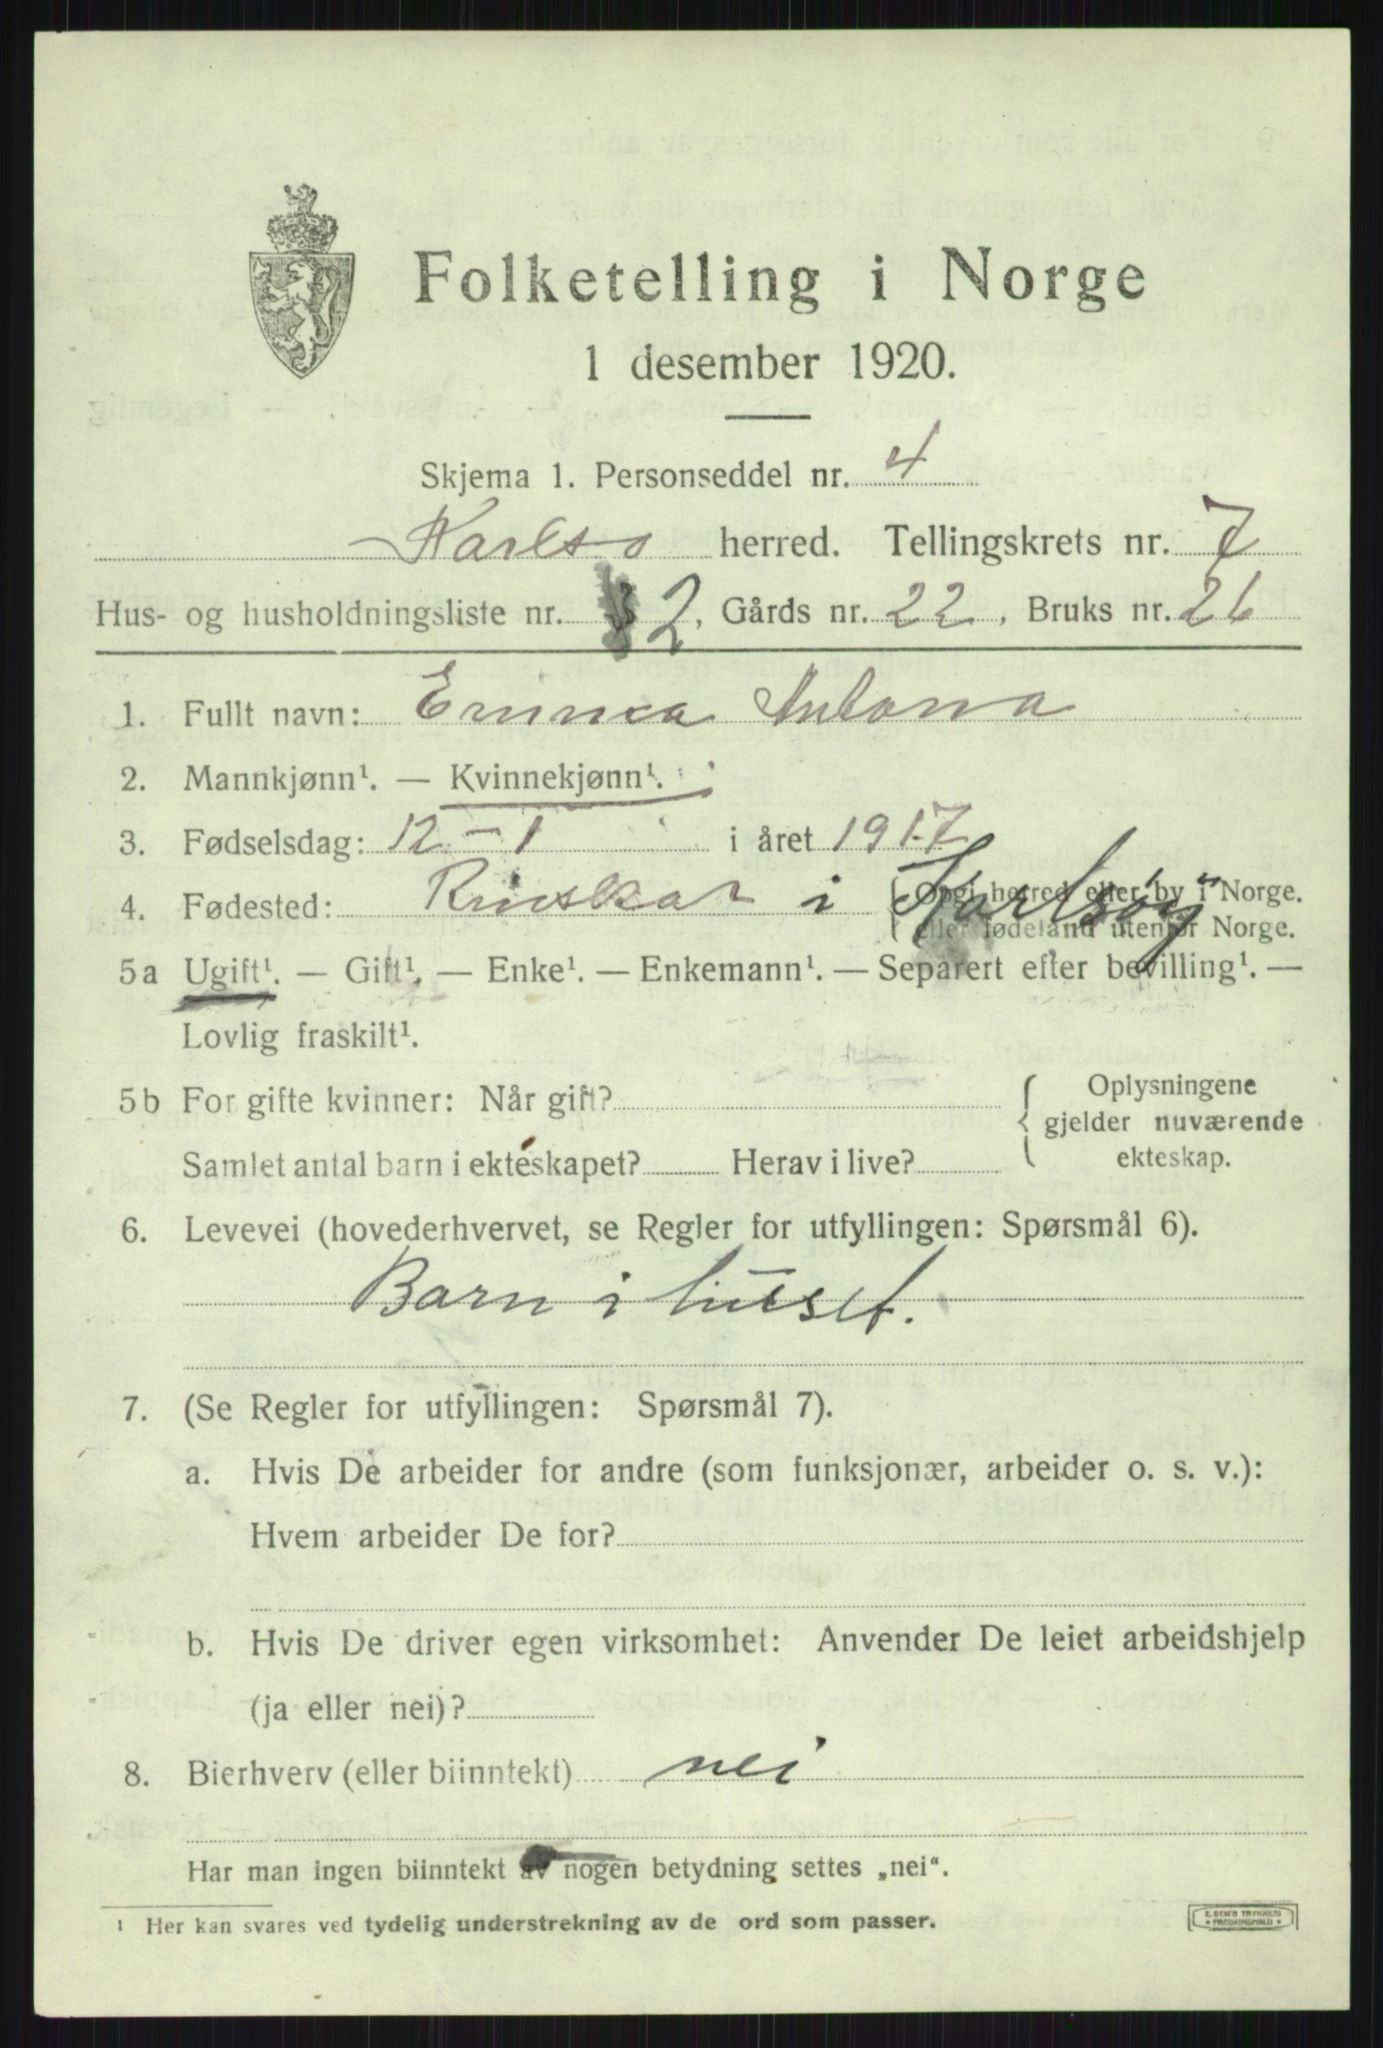 Folketelling i Norge
1 desember 1920.
Skjema 1. Personseddel nr. 4
Karlsø herred. Tellingskrets nr. 7
Hus- og husholdningsliste nr. 2, Gårds nr. 22, Bruks nr. 26
1. Fullt navn: Emma Antona
2. Mannkjønn¹. — Kvinnekjønn¹.
3. Fødselsdag: 12 - 1 i året 1917
4. Fødested: i Karlsøy (Opgi herred eller by i Norge.
eller fødeland utenfor Norge.
5a Ugift¹. — Gift¹. — Enke¹. — Enkemann¹. — Separert efter bevilling¹. —
Lovlig fraskilt¹.
5b For gifte kvinner: Når gift? { Oplysningene
gjelder nuværende
Samlet antal barn i ekteskapet? Herav i live? ekteskap.
6. Levevei (hovederhvervet, se Regler for utfyllingen: Spørsmål 6).
Barn i huset.
7. (Se Regler for utfyllingen: Spørsmål 7).
a. Hvis De arbeider for andre (som funksjonær, arbeider o. s. v.):
Hvem arbeider De for?
b. Hvis De driver egen virksomhet: Anvender De leiet arbeidshjelp
(ja eller nei)?
8. Bierhverv (eller biinntekt) nei
Har man ingen biinntekt av nogen betydning settes „nei“.
¹ Her kan svares ved tydelig understrekning av de ord som passer.